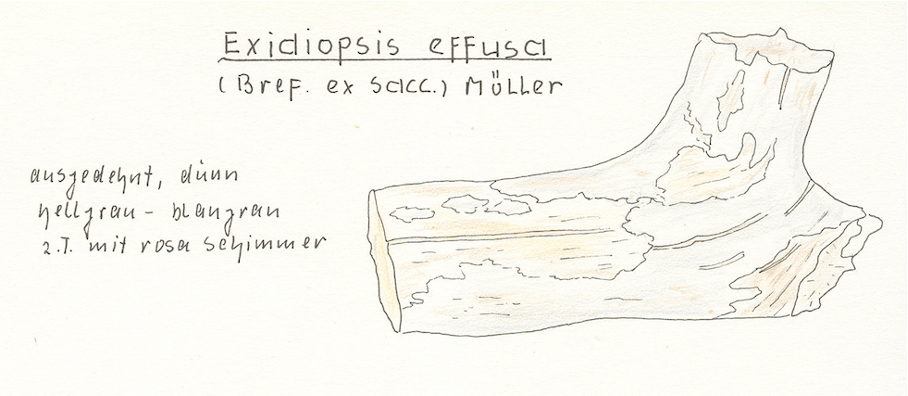 Exidiopsis effusa
(Bref. ex Sacc.) Müller
ausgedehnt, dünn
hellgrau - blaugrau
z.T. mit rosa Schimmer